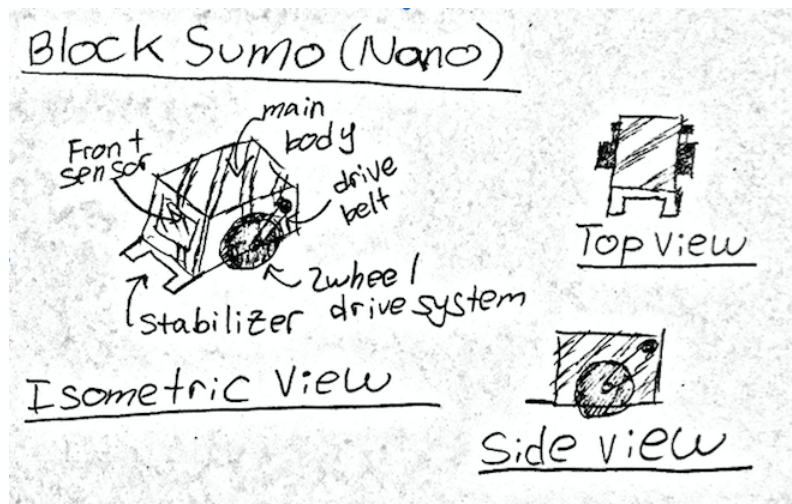 Block Sumo (Nano)
Front
sensor
main
body
drive
belt
2wheel
drive system
Stabilizer
Isometric View
Top View
Side View